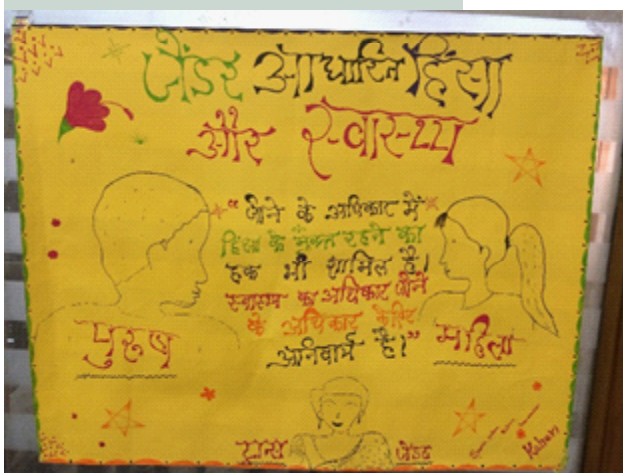 जेंडर आधारित हिंसा
और स्वास्थ्य
"जीने के अधिकार में
हिंसा के मुक्त रहने का
हक भी शामिल है।
स्वास्थ्य का अधिकार जीने
के अधिकार के लिए
अनिवार्य है।"
पुरुष
महिला
ट्रान्स जेंडर